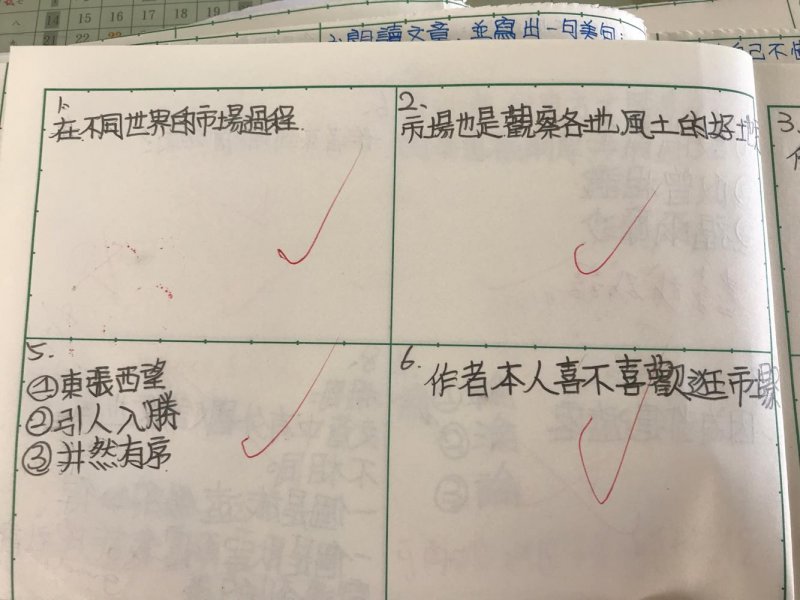 朗讀文章，並寫出一句美句：
自己不
14 15 16 17 18 19 20
21
1、
在不同世界的市場過程
2、
市場也是觀察各地風土的好地
3、
5.
①東張西望
②引人入勝
③井然有序
6.
作者本人喜不喜歡逛市場